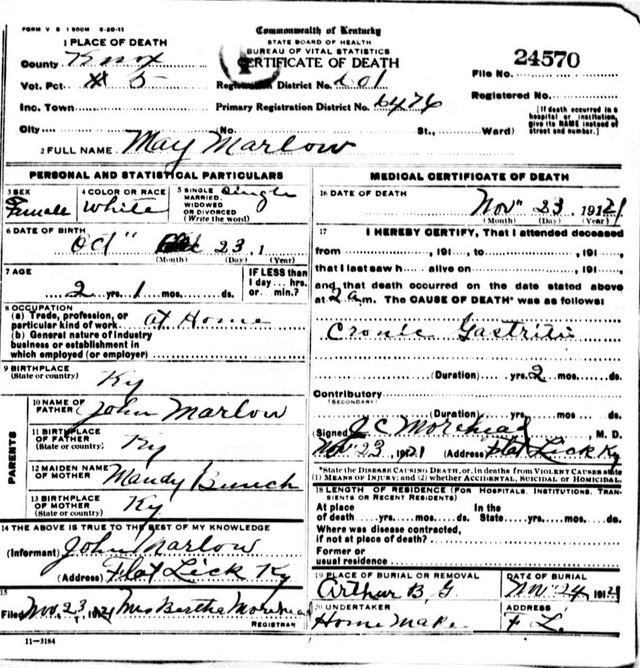 FORM V S 1 500M 6-20-11
Commonwealth of Kentucky
STATE BOARD OF HEALTH
BUREAU OF VITAL STATISTICS
CERTIFICATE OF DEATH
1 PLACE OF DEATH
County Knox
Vot. Pct # 5
Inc. Town
City (No. St., Ward)
Registration District No. 601
Primary Registration District No. 6476
24570
File No.
Registered No.
[If death occurred in a
hospital or institution,
give its NAME instead of
street and number.]
2 FULL NAME May Marlow
PERSONAL AND STATISTICAL PARTICULARS
3 SEX
Female
4 COLOR OR RACE
White
5 SINGLE
MARRIED,
WIDOWED
OR DIVORCED
(Write the word)
Single
6 DATE OF BIRTH
Oct 23, 1
(Month) (Day) (Year)
7 AGE
2 yrs. 1 mos. ds.
IF LESS than
1 day ... hrs.
or min.?
8 OCCUPATION
(a) Trade, profession, or
particular kind of work at Home
(b) General nature of industry
business or establishment in
which employed (or employer)
9 BIRTHPLACE
(State or country)
Ky
PARENTS
10 NAME OF
FATHER John Marlow
11 BIRTHPLACE
OF FATHER
(State or country) Ky
12 MAIDEN NAME
OF MOTHER Mandy Bunch
13 BIRTHPLACE
OF MOTHER
(State or country) Ky
14 THE ABOVE IS TRUE TO THE BEST OF MY KNOWLEDGE
(Informant) John Marlow
(Address) Flat Lick Ky
15
Filed Nov. 23, 1921 Mrs Bertha Morehead
REGISTRAR
11-3184
MEDICAL CERTIFICATE OF DEATH
16 DATE OF DEATH
Nov" 23, 1921
(Month) (Day) (Year)
17 I HEREBY CERTIFY, That I attended deceased
from , 191 , to , 191 ,
that I last saw h alive on , 191 ,
and that death occurred on the date stated above
at 2 a m. The CAUSE OF DEATH* was as follows:
Cronic Gastritis
(Duration) yrs. 2 mos. ds.
Contributory
(SECONDARY)
(Duration) yrs. mos. ds.
Signed J C Morehead, M. D.
Nov 23, 1921 (Address) Flat Lick Ky
*State the DISEASE CAUSING DEATH, or, in deaths from VIOLENT CAUSES state
(1) MEANS OF INJURY; and (2) whether ACCIDENTAL, SUICIDAL or HOMICIDAL.
18 LENGTH OF RESIDENCE (FOR HOSPITALS, INSTITUTIONS, TRANSIENTS OR RECENT RESIDENTS)
At place
of death yrs. mos. ds.
In the
State yrs. mos. ds.
Where was disease contracted,
if not at place of death?
Former or
usual residence
19 PLACE OF BURIAL OR REMOVAL
Arthur B. G.
DATE OF BURIAL
Nov. 24, 1921
20 UNDERTAKER
Home Make
ADDRESS
F L.